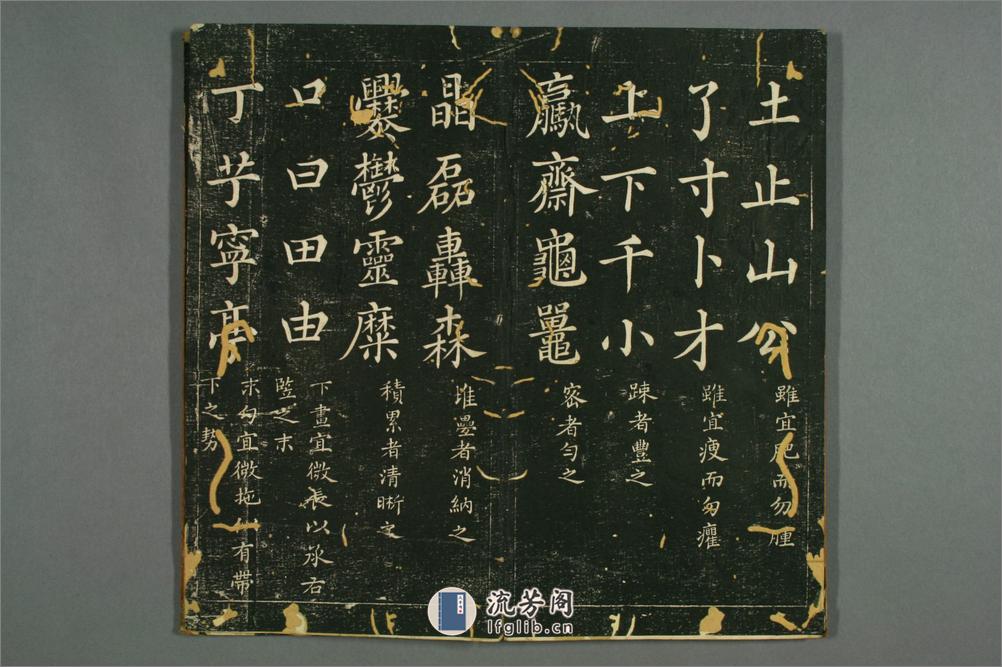 土止山公
雖宜肥而勿腫
了寸卜才
雖宜瘦而勿癯
上下千小
踈者豐之
羸齋龜鼉
密者勻之
晶磊轟森
堆疊者消納之
爨鬱靈糜
積累者清晰之
口曰田由
下畫宜微長以承右
竪之末
丁芧寧亭
末勾宜微拖有帶
下之勢
流芳阁
lfglib.cn